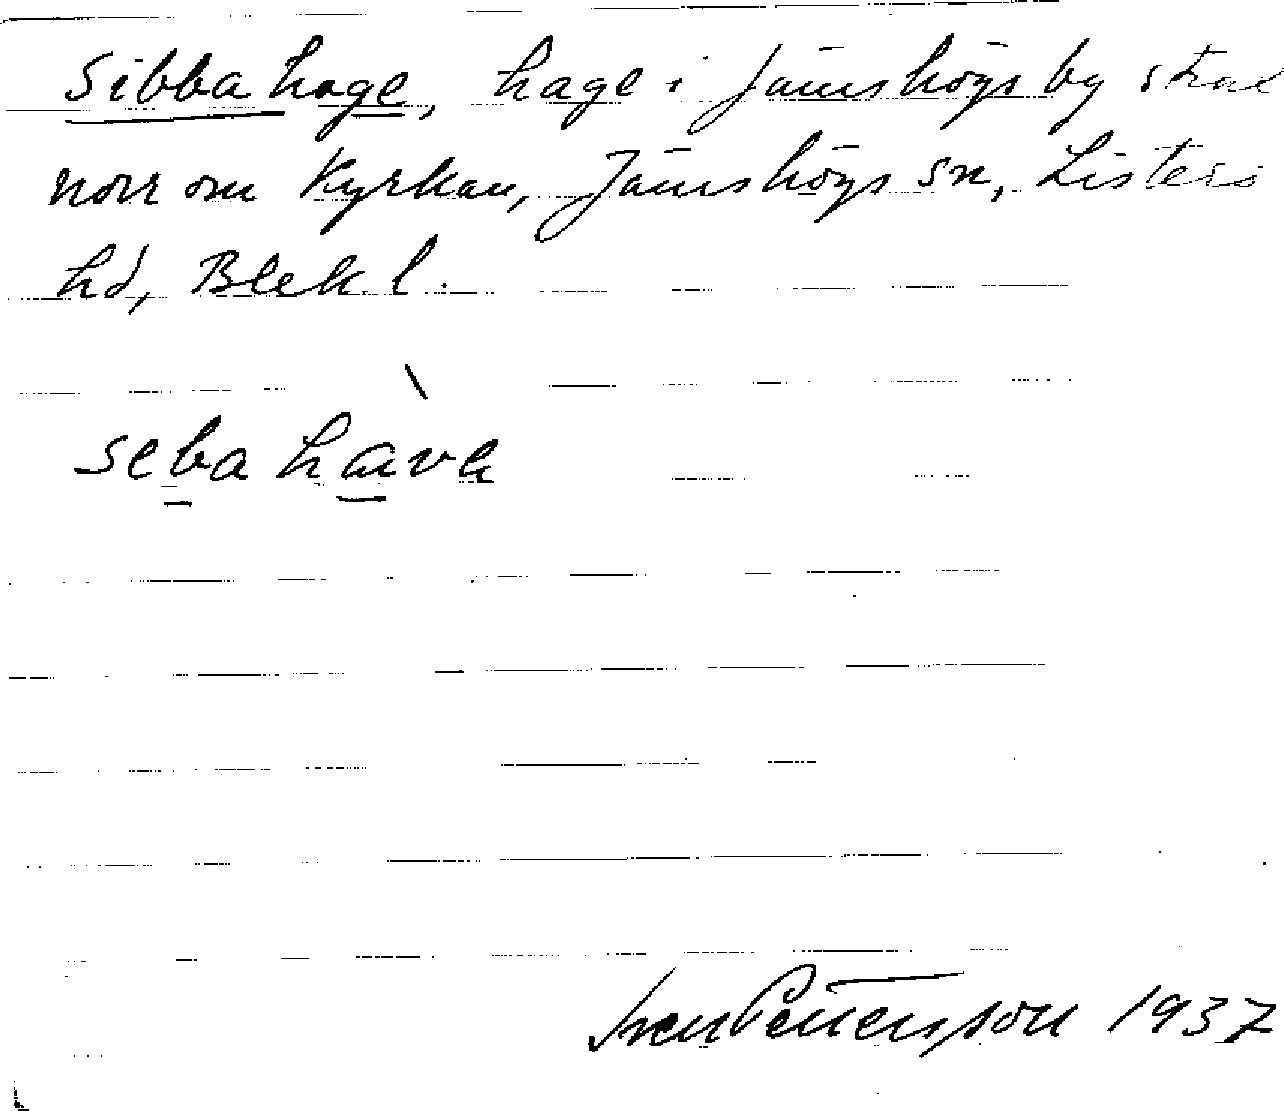 Sibba hage, hage i Jämshögs by strax
norr om Kyrkan, Jämshögs sn, Listers
hd, Blek. l.
seba hàve
Sven Pettersson 1937